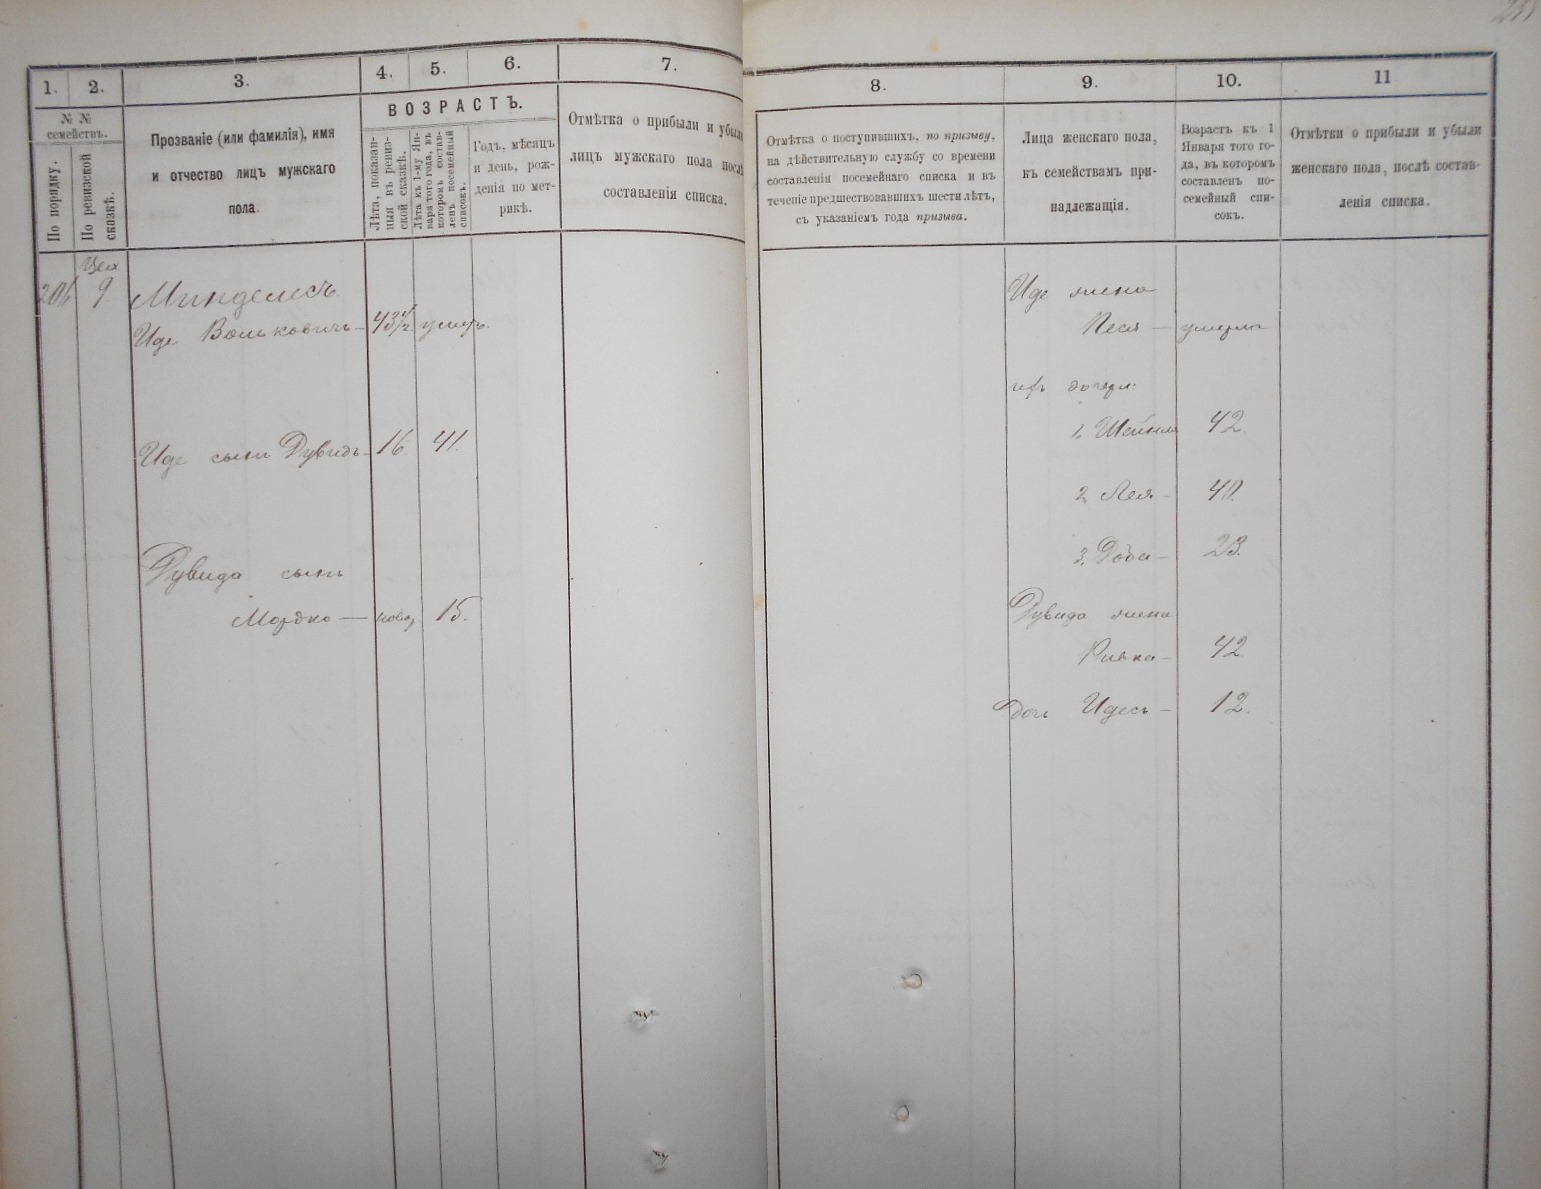 1.
2.
3.
4.
5.
6.
7.
№ №
семействъ.
По порядку.
По ревизской
сказкѣ.
Прозваніе (или фамилія), имя
и отчество лицъ мужскаго
пола.
ВОЗРАСТЪ.
Лѣта, показан-
ныя въ ревиз-
ской сказкѣ.
Лѣта къ 1-му Ян-
варя того года, въ
которомъ состав-
ленъ посемейный
списокъ.
Годъ, мѣсяцъ
и день, рож-
денія по мет-
рикѣ.
Отмѣтка о прибыли и убыли
лицъ мужскаго пола послѣ
составленія списка.
9
Минделесъ
Иде Вольковичъ — 43½ умеръ.
Иде сынъ Дувидъ — 16. 41.
Дувида сынъ
Мордко — новор. 15.
8.
9.
10.
11
Отмѣтка о поступившихъ, по призыву,
на дѣйствительную службу со времени
составленія посемейнаго списка и въ
теченіе предшествовавшихъ шести лѣтъ,
съ указаніемъ года призыва.
Лица женскаго пола,
къ семействамъ при-
надлежащія.
Возрастъ къ 1
Января того го-
да, въ которомъ
составленъ по-
семейный спи-
сокъ.
Отмѣтки о прибыли и убыли
женскаго пола, послѣ состав-
ленія списка.
Иде жена
Песя — умерла
ихъ дочери:
1. Шейнля 42.
2. Лея — 40.
3. Доба — 23.
Дувида жена
Ривка — 42.
дочь Идесъ — 12.